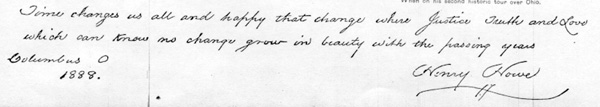 When on his second historic tour over Ohio.
Time changes us all and happy that change where Justice Truth and Love
which can know no change grow in beauty with the passing years
Columbus O
1888.
Henry Howe